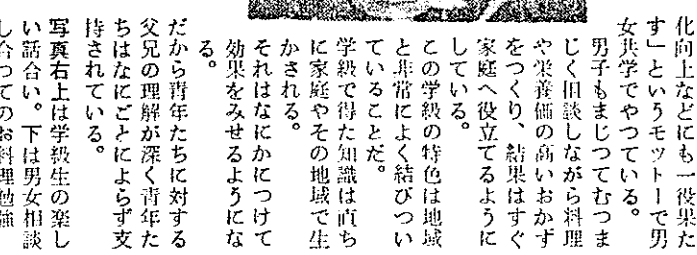 化向上などにも一役果た
す」というモットーで男
女共学でやつている。
男子もまじつてむつま
じく相談しながら料理
や栄養価の高いおかず
をつくり、結果はすぐ
家庭へ役立てるように
している。
この学級の特色は地域
と非常によく結びつい
ていることだ。
学級で得た知識は直ち
に家庭やその地域で生
かされる。
それはなにかにつけて
効果をみせるようにな
る。
だから青年たちに対する
父兄の理解が深く青年た
ちはなにごとによらず支
持されている。
写真右上は学級生の楽し
い話合い。下は男女相談
し合つてのお料理勉強